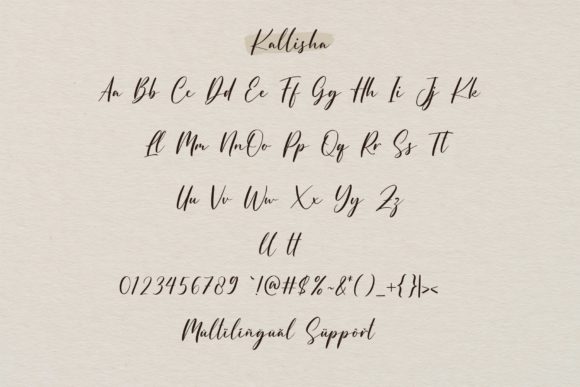 Kallisha
Aa Bb Cc Dd Ee Ff Gg Hh Ii Jj Kk
Ll Mm Nn Oo Pp Qq Rr Ss Tt
Uu Vv Ww Xx Yy Zz
ll tt
0123456789 `!@#$%~&*()_+{}|><
Multilingual Support